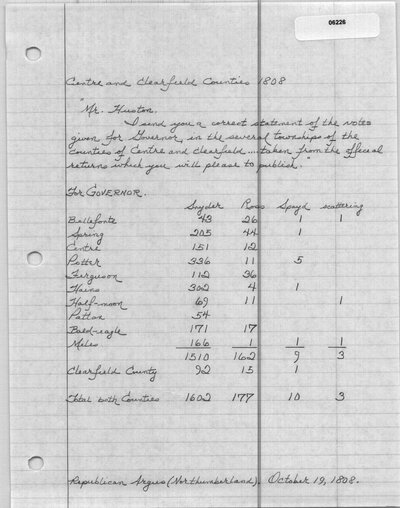 06226
Centre and Clearfield Counties 1808
"Mr. Huston,
I send you a correct statement of the votes
given for Governor, in the several townships of the
counties of Centre and Clearfield.... taken from the official
returns which you will please to publish."
For GOVERNOR.
Snyder Ross Spayd scattering
Bellefonte 43 26 1
Spring 205 44 1
Centre 151 12
Potter 336 11 5
Ferguson 112 36
Hains 302 4 1
Half-moon 69 11 1
Patton 54
Bald-eagle 171 17
Miles 166 1 1 1
1510 162 9 3
Clearfield County 92 15 1
Total both Counties 1602 177 10 3
Republican Argus (Northumberland). October 19, 1808.